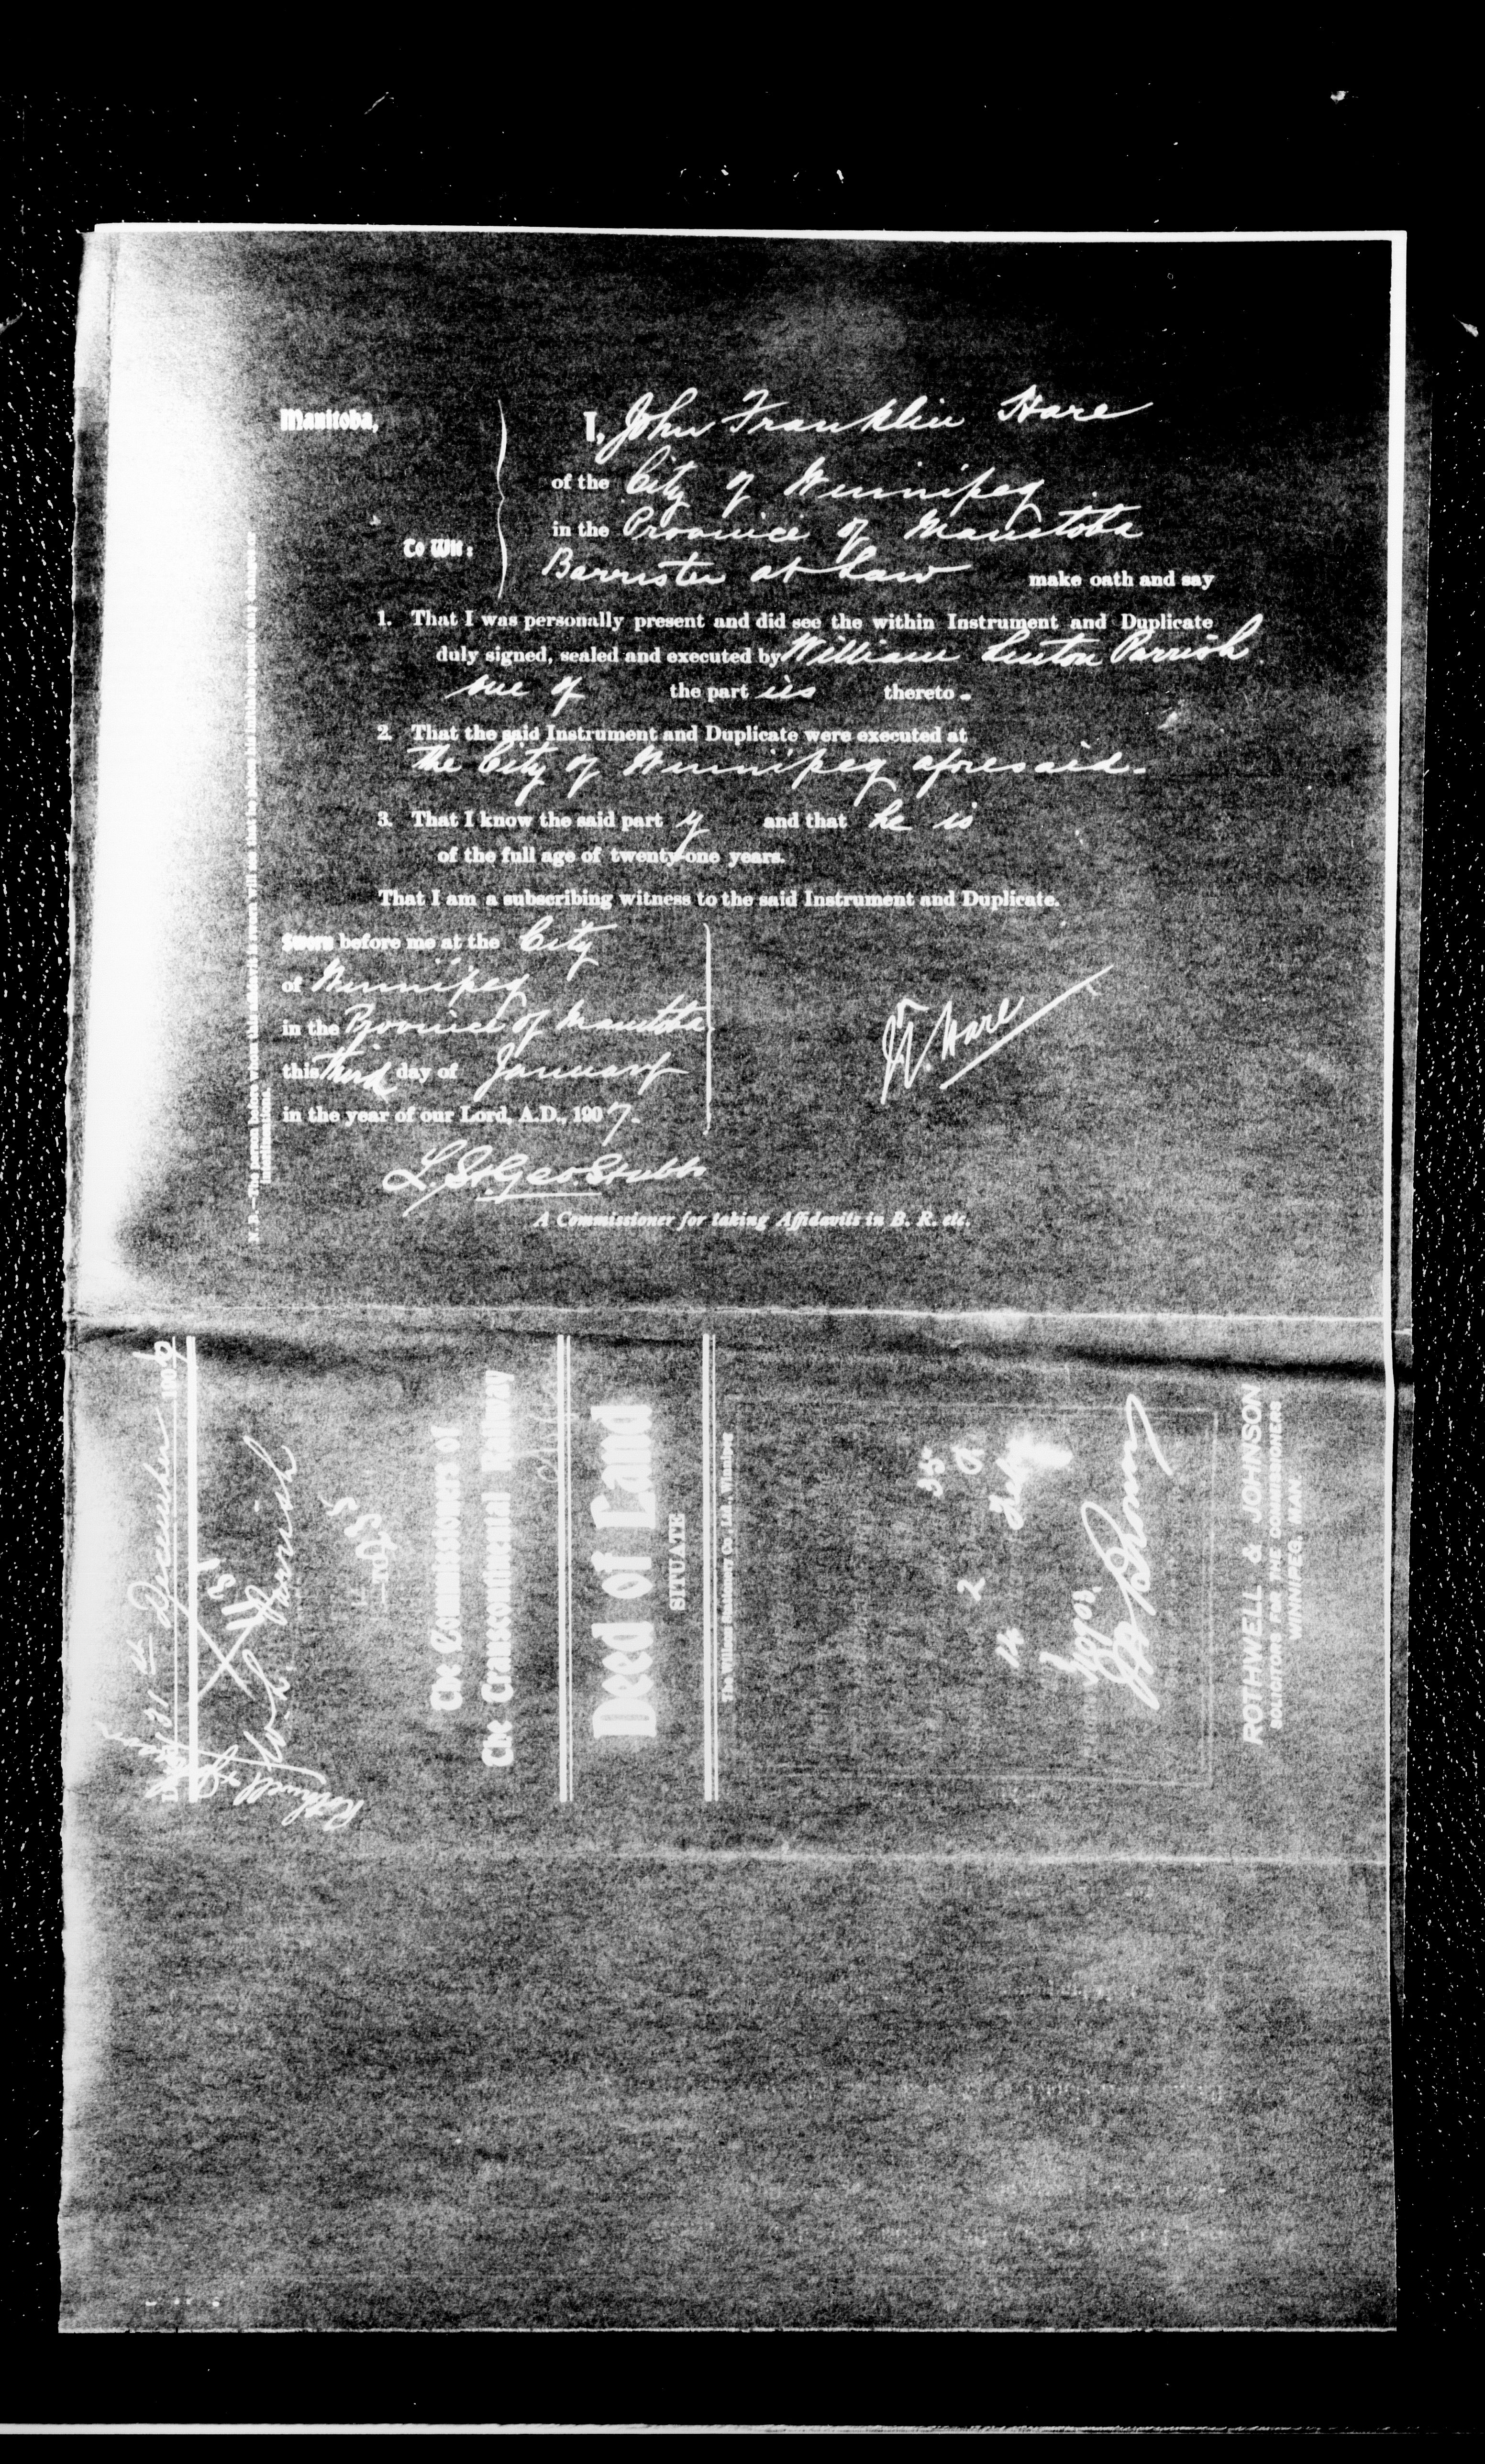 Manitoba,
To Wit:
I, John Franklin Hare
of the City of Winnipeg
in the Province of Manitoba
Barrister at Law make oath and say
1. That I was personally present and did see the within Instrument and Duplicate
duly signed, sealed and executed by William Linton Parrish
one of the part ies thereto.
2. That the said Instrument and Duplicate were executed at
the City of Winnipeg aforesaid.
3. That I know the said part y and that he is
of the full age of twenty-one years.
That I am a subscribing witness to the said Instrument and Duplicate.
Sworn before me at the City
of Winnipeg
in the Province of Manitoba
this third day of January
in the year of our Lord, A.D., 1907.
J.F. Hare
L. St. Geo Stubbs
A Commissioner for taking Affidavits in B. R. etc.
N.B.—The person before whom this affidavit is sworn will see that he places his initials opposite any changes or
interlineations.
31 December 190
W. L. Parrish
TO
The Commissioners of
The Transcontinental Railway
Deed of Land
SITUATE
The Willson Stationery Co., Ltd., Winnipeg
35
14 2
ROTHWELL & JOHNSON
SOLICITORS FOR THE COMMISSIONERS
WINNIPEG, MAN.